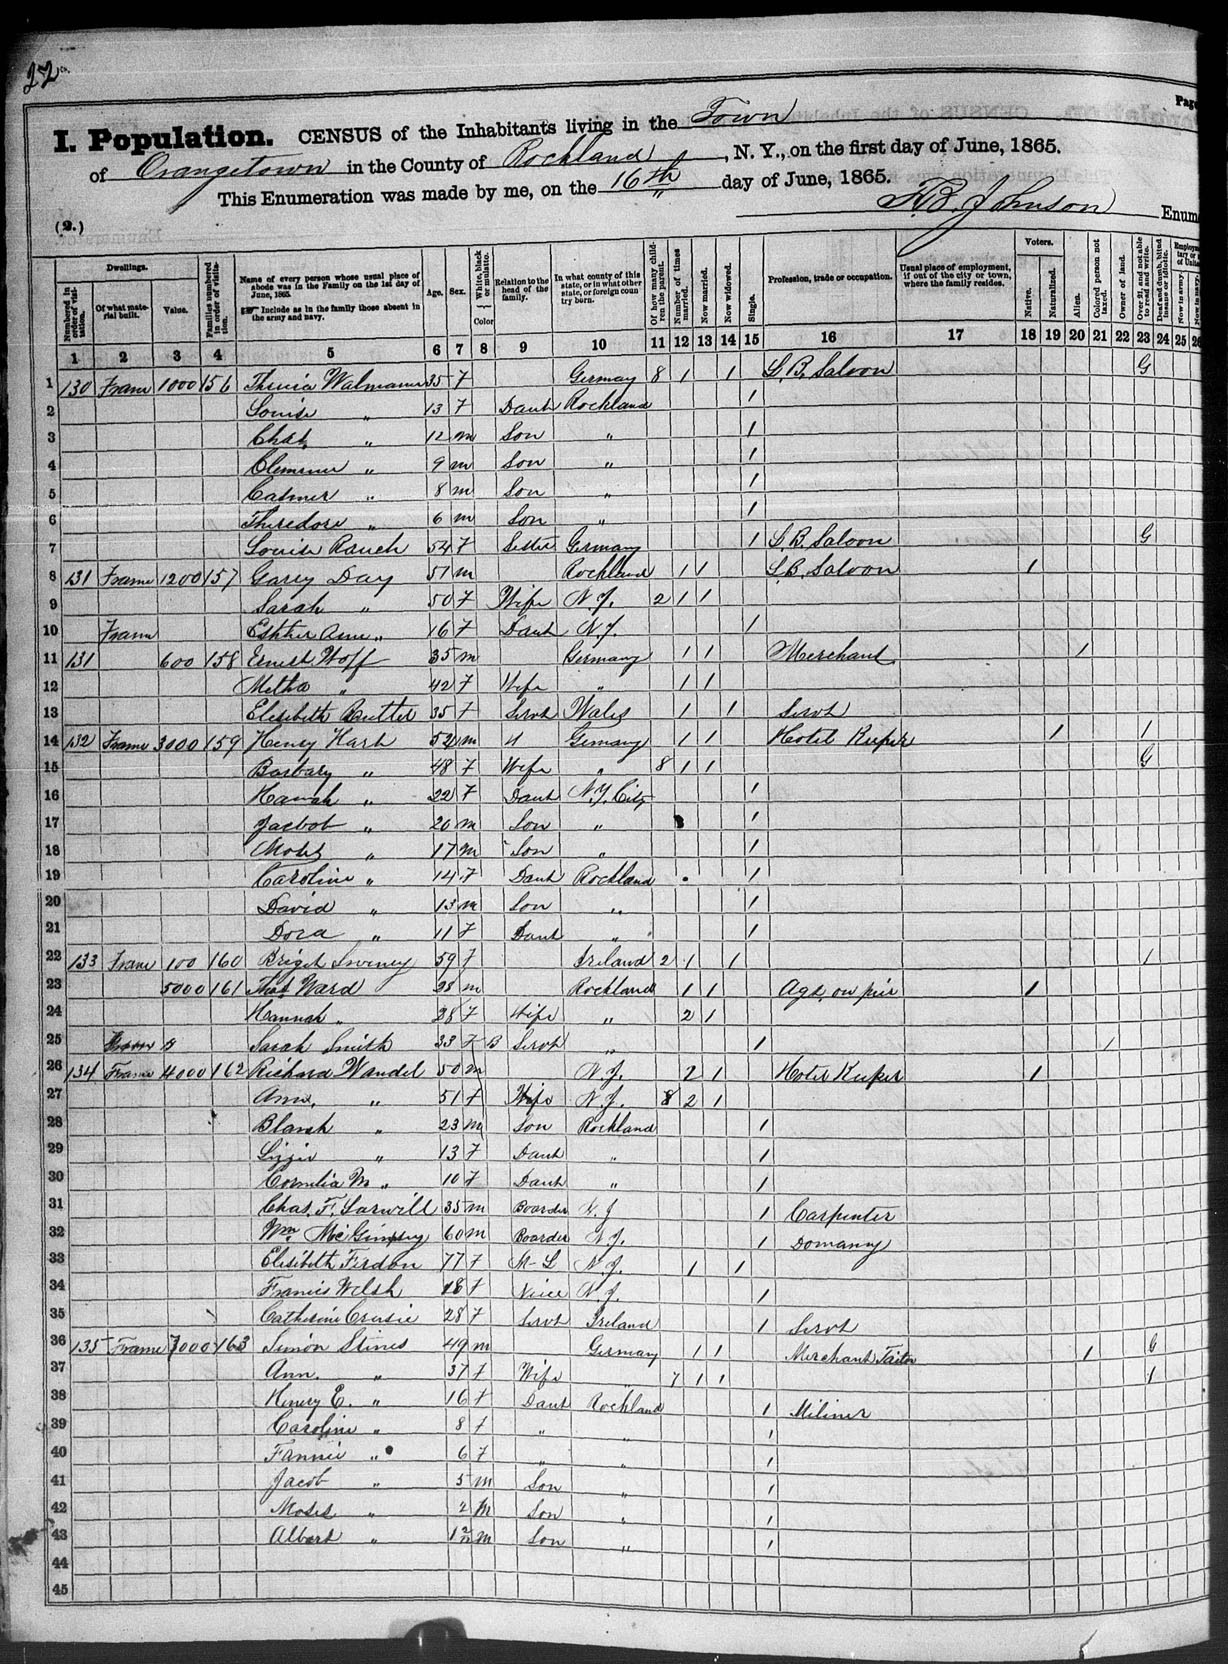 22
Page
I. Population. CENSUS of the Inhabitants living in the Town
of Orangetown in the County of Rockland, N. Y., on the first day of June, 1865.
This Enumeration was made by me, on the 16th day of June, 1865.
(2.) H.B. Johnson Enume
Numbered in order of visitation.
Dwellings.
Of what material built.
Value.
Families numbered in order of visitation.
Name of every person whose usual place of abode was in the Family on the 1st day of June, 1865.
Include as in the family those absent in the army and navy.
Age.
Sex.
White, black or mulatto.
Color
Relation to the head of the family.
In what county of this state, or in what other state, or foreign country born.
Of how many children the parent.
Number of times married.
Now married.
Now widowed.
Single.
Profession, trade or occupation.
Usual place of employment, if out of the city or town, where the family resides.
Voters.
Native.
Naturalized.
Alien.
Colored person not taxed.
Owner of land.
Over 21, and not able to read and write.
Deaf and dumb, blind insane or idiotic.
Now in army.
1 2 3 4 5 6 7 8 9 10 11 12 13 14 15 16 17 18 19 20 21 22 23 24 25 26
1 130 Frame 1000 156 Walmann 35 F Germay 8 1 1 L.B. Saloon G
2 Louise " 13 F Daut Rockland 1
3 Chas. " 12 m Son " 1
4 " 9 m Son " 1
5 Casmer " 8 m Son " 1
6 Theredore " 6 m Son " 1
7 Louise Rauch 54 F Sister Germany 1 L.B. Saloon G
8 131 Frame 1200 157 Garey Day 51 m Rockland 1 1 L.B. Saloon 1
9 Sarah " 50 F Wife N.Y. 2 1 1
10 Frame Esther Ann " 16 F Daut N.Y. 1
11 131 600 158 Ernest Woff 35 m Germany 1 1 Merchant 1
12 Metha " 42 F Wife " 1 1
13 Elesibeth Buttler 35 F Servt Wales 1 1 Servt
14 132 Frame 3000 159 Henry Harh 52 m Gemany 1 1 Hotel Keeper 1 1
15 Barbary " 48 F Wife " 8 1 1 G
16 Hanah " 22 F Daut N.Y. City 1
17 Jacbob " 20 m Son " 1
18 Moses " 17 m Son " 1
19 Caroline " 14 F Daut Rockland 1
20 David " 13 m Son " 1
21 Dora " 11 F Daut " 1
22 133 Frame 100 160 Briget Sweney 59 F Ireland 2 1 1 1
23 5000 161 Thos. Ward 28 m Rockland 1 1 Agt. on pier 1
24 Hannah " 28 F Wife " 2 1
25 Sarah Smith 33 F B Servt " 1 1
26 134 Frame 4000 162 Richard Wandel 50 m N.J. 2 1 Hotel Keeper 1
27 Ann. " 51 F Wife N.J. 8 2 1
28 Blansh " 23 m Son Rockland 1
29 Lizzie " 13 F Daut " 1
30 Cornelia M " 10 F Daut " 1
31 Chas. F. Sarwill 35 m Boarder N.J 1 Carpenter
32 Wm. McGimpsey 60 m Boarder N.J. 1 Domanny
33 Elisibeth Ferdon 77 F M-L N.J. 1 1
34 Francis Welsh 18 F Niece N.J. 1
35 Catherine Crusie 28 F Servt Ireland 1 Servt
36 135 Frame 7000 163 Simon Stines 49 m Germany 1 1 Merchant Tailor 1 G
37 Ann. " 37 F Wife " 7 1 1 1
38 Henery E. " 16 F Daut Rockland 1 Miliner
39 Caroline " 8 F " " 1
40 Fannie " 6 F " " 1
41 Jacob " 5 m Son " 1
42 Moses " 2 M Son " 1
43 Albert " m Son " 1
44
45